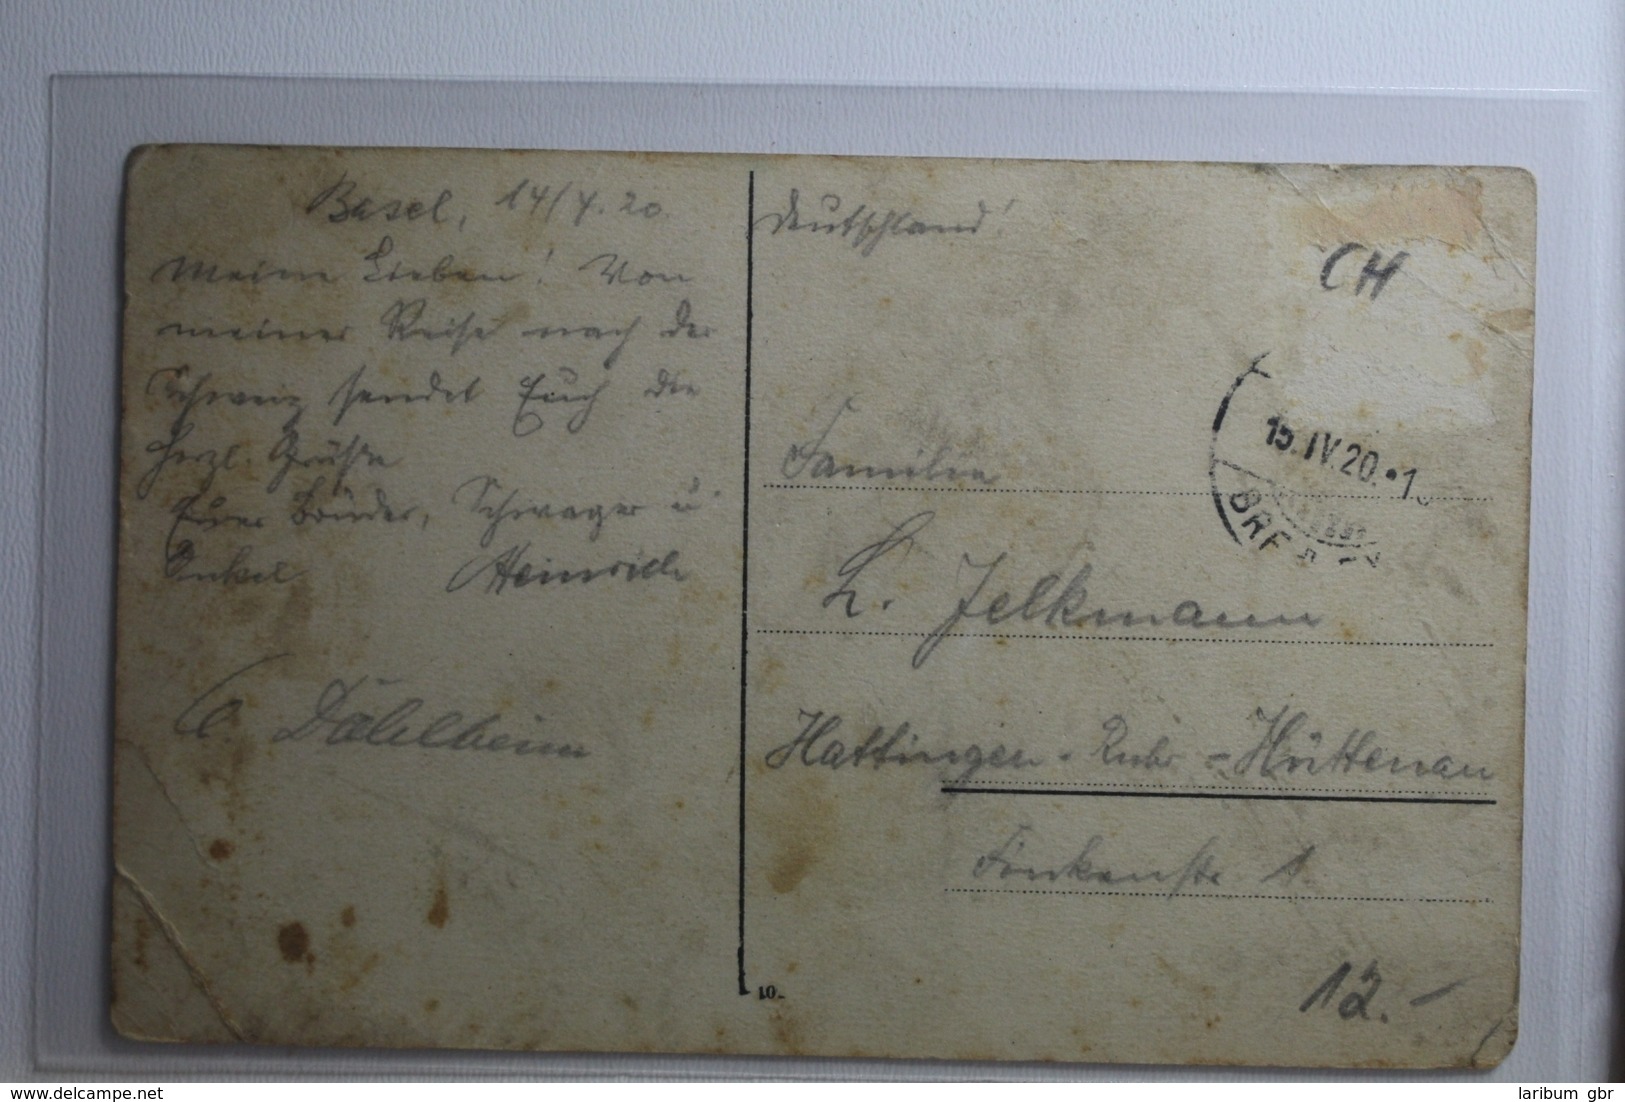 Basel, 14/4.20.
Meine Lieben! Von
meiner Reise nach der
Schweiz sendet Euch die
herzl. Grüße
Euer Bruder, Schwager u
Onkel Heinrich
Deutschland!
CH
15.IV.20.•1
Familie
L. Jelkmann
Hattingen-Ruhr-Hüttenau
Finkenstr 1.
10.
12.-
laribum gbr